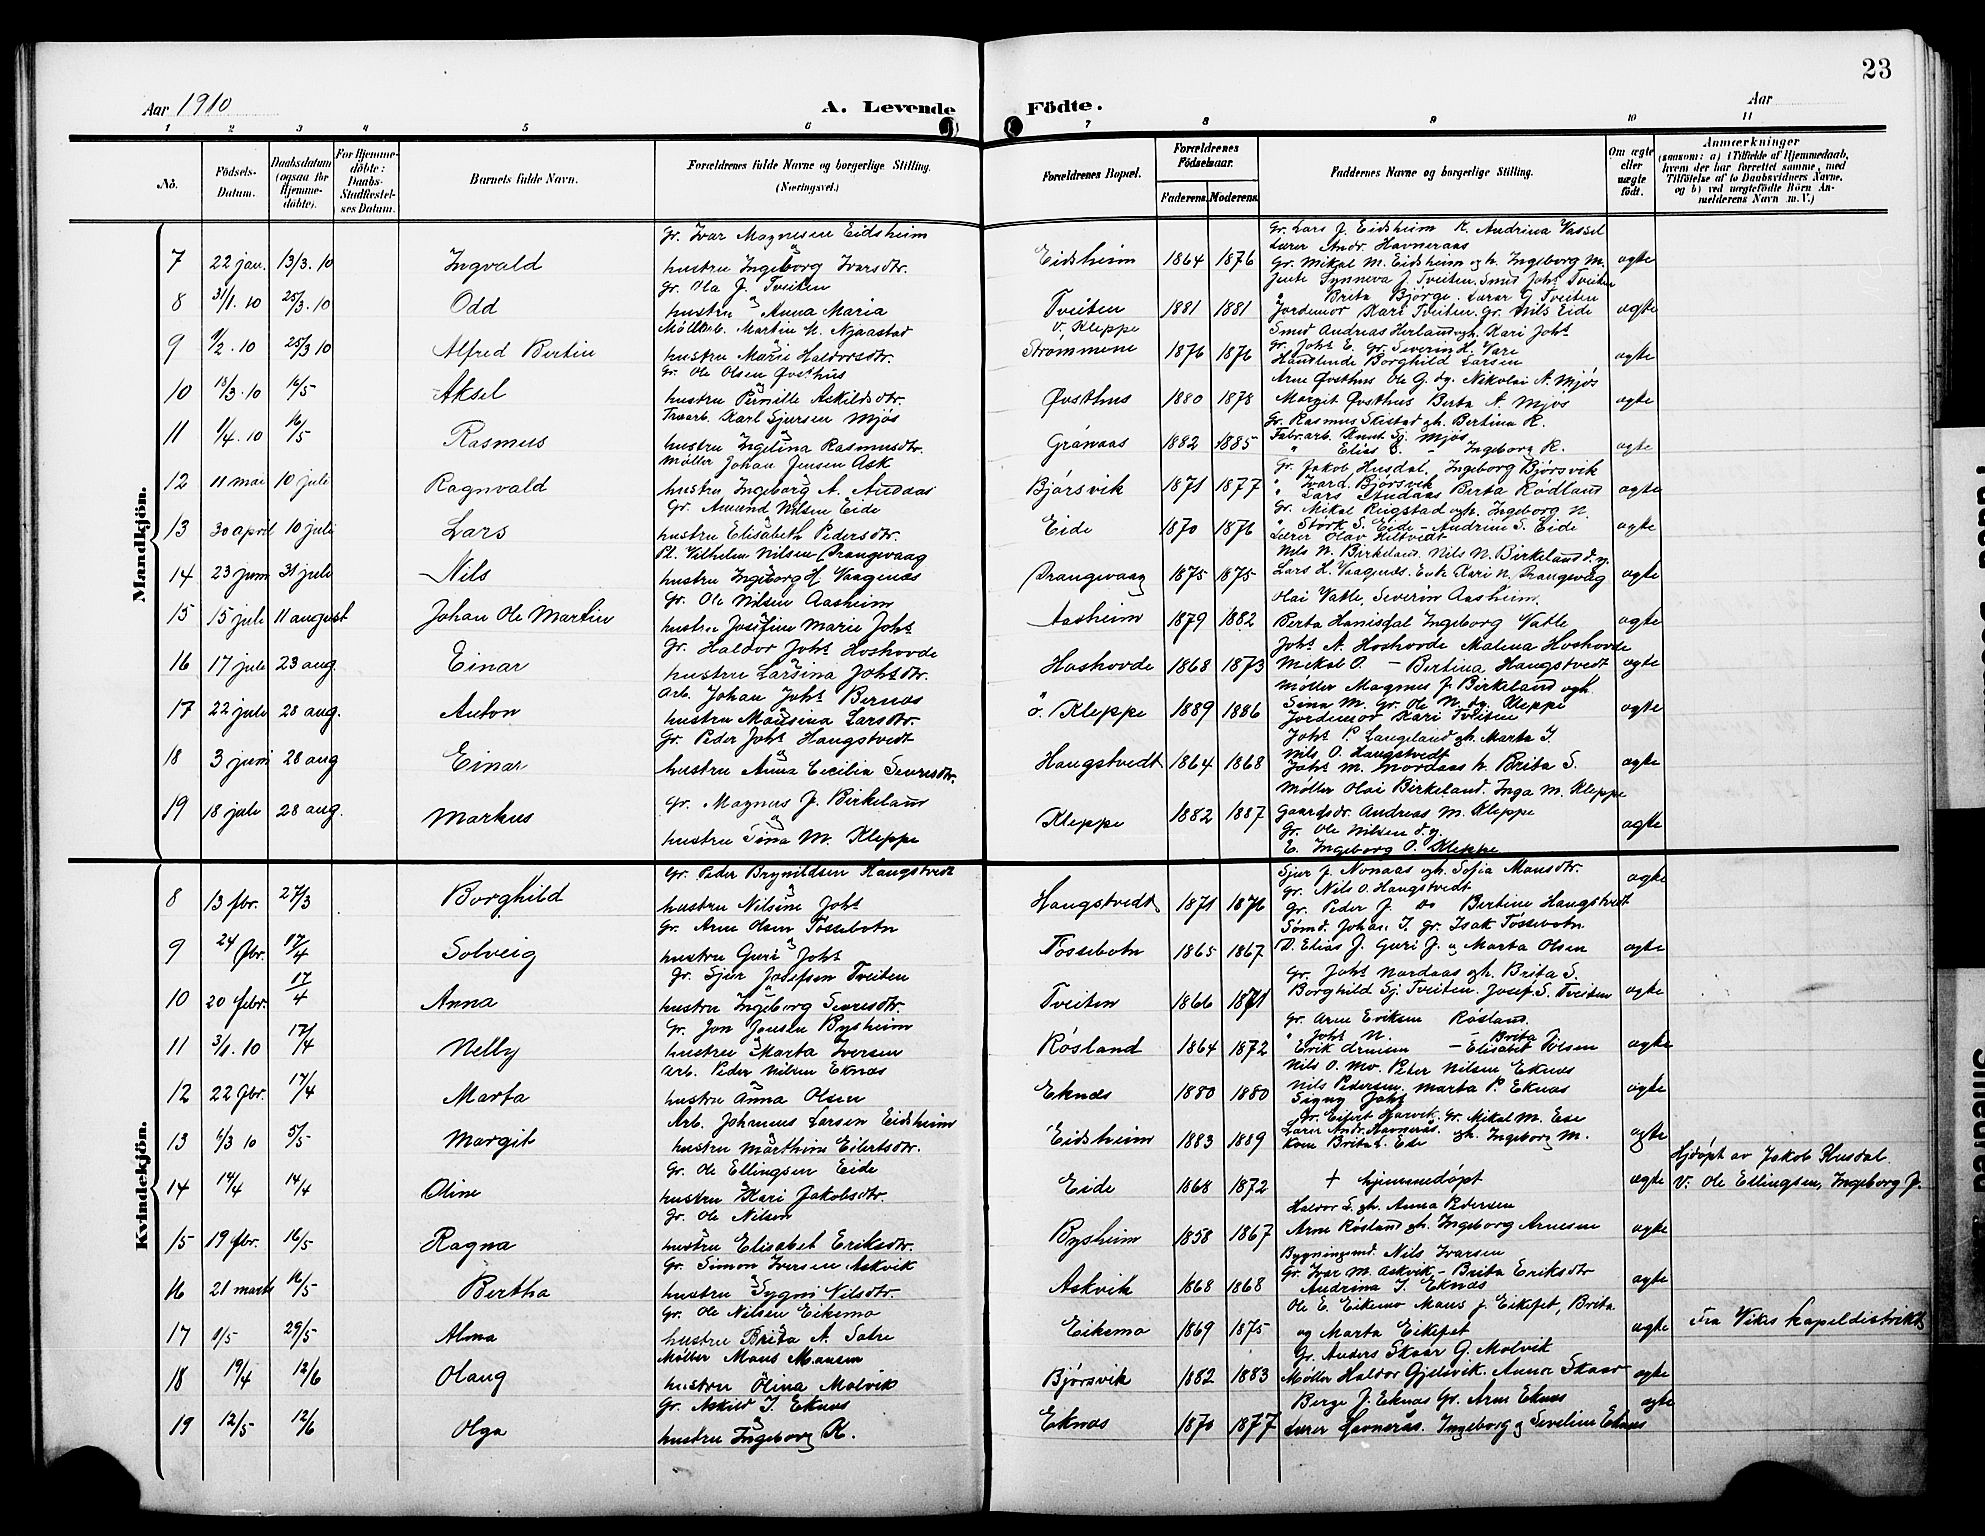 23
Aar 1910
A. Levende Födte.
Aar
1 2 3 4 5 6 7 8 9 10 11
Nö.
Födsels-Datum.
Daabsdatum (ogsaa for Hjemme-döbte).
For Hjemme-döbte: Daabs-Stadfæstel-ses Datum.
Barnets fulde Navn.
Forældrenes fulde Navne og borgerlige Stilling.
(Næringsvei.)
Forældrenes Bopæl.
Forældrenes Födselsaar.
Faderens. Moderens.
Faddernes Navne og borgerlige Stilling.
Om ægte eller uægte födt.
Anmærkninger
(saasom: a) i Tilfælde af Hjemmedaab, hvem der har forrettet samme, med Tilföielse af to Daabsvidners Navne, og b) ved uægtefödte Börn An-melderens Navn m. V.)
Mandkjön.
Gr. Ivar Magnesen Eidsheim
Gr. Lars J. Eidsheim K. Andrina Vassel
Lærer Andr. Havneraas
7 22 jan. 13/3.10 Ingvald hustru Ingeborg Ivarsdtr. Eidsheim 1864 1876 Gr. Mikal M. Eidsheim og h. Ingeborg M. ægte
Gr. Ola J. Tveiten
Jente Synneva J. Tveiten. Smid Johs Tveiten
" Brita Bjørge. Lærer G. Tveiten
8 31/1.10 25/3.10 Odd hustru Anna Maria Tveiten 1881 1881 Jordemor Kari Tveiten. Gr. Nils Eide ægte
Møllarb. Martin N. Njaastad
v. Kleppe
Smed Andreas Herland og h. Kari Johs
Gr. Johs E. Gr. Severin H. Vare
9 1/2.10 25/3 10 Alfred Bertin hustru Marie Haldorsdtr. Strømmene 1876 1876 Handlende Borghild Larsen ægte
Gr. Ole Olsen Øvsthus
Arne Øvsthus Ole G. og Nikolai A. Mjøs
10 13/3.10 16/5 Aksel hustru Pernille Askildsdtr. Øvsthus 1880 1878 Margit Øvsthus Berta A. Mjøs ægte
Karl Sjursen Mjøs
Gr. Rasmus Skistad og h. Bertina K.
Fabr. arb. Knut Sj. Mjøs
11 1/4.10 16/5 Rasmus hustru Ingelina Rasmusdtr. Grönaas 1882 1885 " Elias S. - Ingeborg K. ægte
Møller Johan Jensen Ask
Gr. Jakob Husdal, Ingeborg Bjørsvik
" Ivar d. Bjørsvik
12 11 mai 10 juli Ragnvald hustru Ingeborg A. Andaas Bjørsvik 1871 1877 " Lars Andaas Berta Rødland ægte
Gr. Amund Nilsen Eide
Gr. Mikal Reigstad og h. Ingeborg N.
13 30 april 10 juli Lars hustru Elisabeth Pedersdtr. Eide 1870 1876 " Størk S. Eide - Andrine S. Eide ægte
Lærer Olav Hiltvedt
Pl. Vilhelm Nilsen Drangevaag
Nils N. Birkeland. Nils N. Birkeland d.y.
14 23 juni 31 juli Nils hustru Ingeborg H Vaagenæs Drangevaag 1875 1875 Lars H. Vaagenæs. Enk. Kari N. Drangevåg ægte
Gr. Ole Nilsen Aasheim
Olai Vatle, Severin Aasheim.
15 15 juli 11 august Johan Ole Martin hustru Josefine Marie Johs Aasheim 1879 1882 Berta Hanisdal Ingeborg Vatle ægte
Gr. Haldor Johs Hoshovde
Johs N. Hoshovde Malena Hoshovde
16 17 juli 23 aug Einar hustru Larsina Johsdtr. Hoshovde 1868 1873 Mikal O. - Bertina Haugstvedt ægte
Arb. Johan Johs Bernæs
Møller Magnus J. Birkeland og h.
17 22 juli 28 aug. Anton hustru Mansina Larsdtr. ö. Kleppe 1889 1886 Sina M. Gr. Ole N. d.y. Kleppe ægte
Jordemor Kari Tveiten
Gr. Peder Johs Haugstvedt
Johs P. Langeland og h. Marta I.
Nils O. Haugstvedt
18 3 juni 28 aug Einar hustru Anna Cecilia Seversdtr. Haugstvedt 1864 1868 Johs M. Nordaas h. Brita S. ægte
Møller Olai Birkeland. Inga M. Kleppe
Gr. Magnus J. Birkeland
19 18 juli 28 aug. Markus hustru Sina M. Kleppe Kleppe 1882 1887 Gaardsdr. Andreas M. Kleppe ægte
Gr. Ole Nilsen d.y.
E. Ingeborg O. Kleppe
Kvindekjön.
Gr. Peder Brynildsen Haugstvedt
Sjur J. Nonaas og h. Sofia Mansdtr.
Gr. Nils O. Haugstvedt
8 13 fbr. 27/3 Borghild hustru Nilsine Johs Haugstvedt 1871 1876 Gr. Peder J. do Bertine Haugstvedt ægte
Gr. Arne Olsen Tossebotn
Sømd. Johan I. gr. Isak Tossebotn
9 24 fbr. 17/4 Solveig hustru Guri Johs Tossebotn 1865 1867 D. Elias J. Guri J. og Marta Olsen ægte
Gr. Sjur Josefsen Tveiten
Gr. Johs Nordaas og h. Brita S.
10 20 febr. 17/4 Anna hustru Ingeborg Seversdtr. Tveiten 1866 1871 Borghild Sj. Tveiten. Josef S. Tveiten ægte
Gr. Jon Jonsen Bysheim
Gr. Arne Eriksen Røsland.
" Johs N. Brita
11 3/1.10 17/4 Nelly hustru Marta Iversen Røsland 1864 1872 Erik Arnesen - Elisabet Polsen ægte
Arb. Peder Nilsen Eknæs
Nils O. Mo. Peter Nilsen Eknæs
12 22 fbr. 17/4 Marta hustru Anna Olsen Eknæs 1880 1880 Nils Pedersen, Marta P. Eknæs ægte
Signy Johs
Arb. Johannes Larsen Eidsheim
Gr. Eifert Harvik. Gr. Mikal M. Ese
Lærer Andr. Havnerås. og h. Ingeborg M.
13 6/3 10 5/5 Margit hustru Marthine Eilertsdtr. Eidsheim 1883 1889 Kone Brita L. Ede ægte
Gr. Ole Ellingsen Eide
Hjdøpt av Jakob Husdal.
14 14/4 14/4 Oline hustru Kari Jakobsdtr. Eide 1868 1872 + hjemmedøpt ægte V. Ole Ellingsen, Ingeborg J.
Gr. Ole Nilsen
Haldor L. og h. Anna Pedersen
15 19 fbr. 16/5 Ragna hustru Elisabet Eriksdtr. Bysheim 1858 1867 Arne Røsland og h. Ingeborg Arnesen ægte
Gr. Simon Iversen Askvik
Bygningsmd. Nils Ivarsen
Gr. Ivar M. Askvik - Brita Eriksdtr
16 21 marts 16/5 Bertha hustru Sygni Nilsdtr. Askvik 1868 1868 Andrina I. Eknæs ægte
Gr. Ole Nilsen Eikemo
Ole E. Eikemo Mans J. Eikefet, Brita
17 1/5 29/5 Alma hustru Brita A. Solre Eikemo 1869 1875 og Marta Eikefet ægte Fra Vikes kapeldistrikt
Møller Mons Monsen
Gr. Anders Skaar G. Molvik
18 19/4 12/6 Olaug hustru Olina Molvik Bjørsvik 1882 1883 Møller Haldor Gjelsvik. Anna Skaar ægte
Gr. Askild I. Eknæs
Berge J. Eknæs Gr. Arne Eknæs
19 12/5 12/6 Olga hustru Ingeborg K. Eknæs 1870 1877 Lærer Havnerås. Ingeborg og Seveline Eknæs ægte